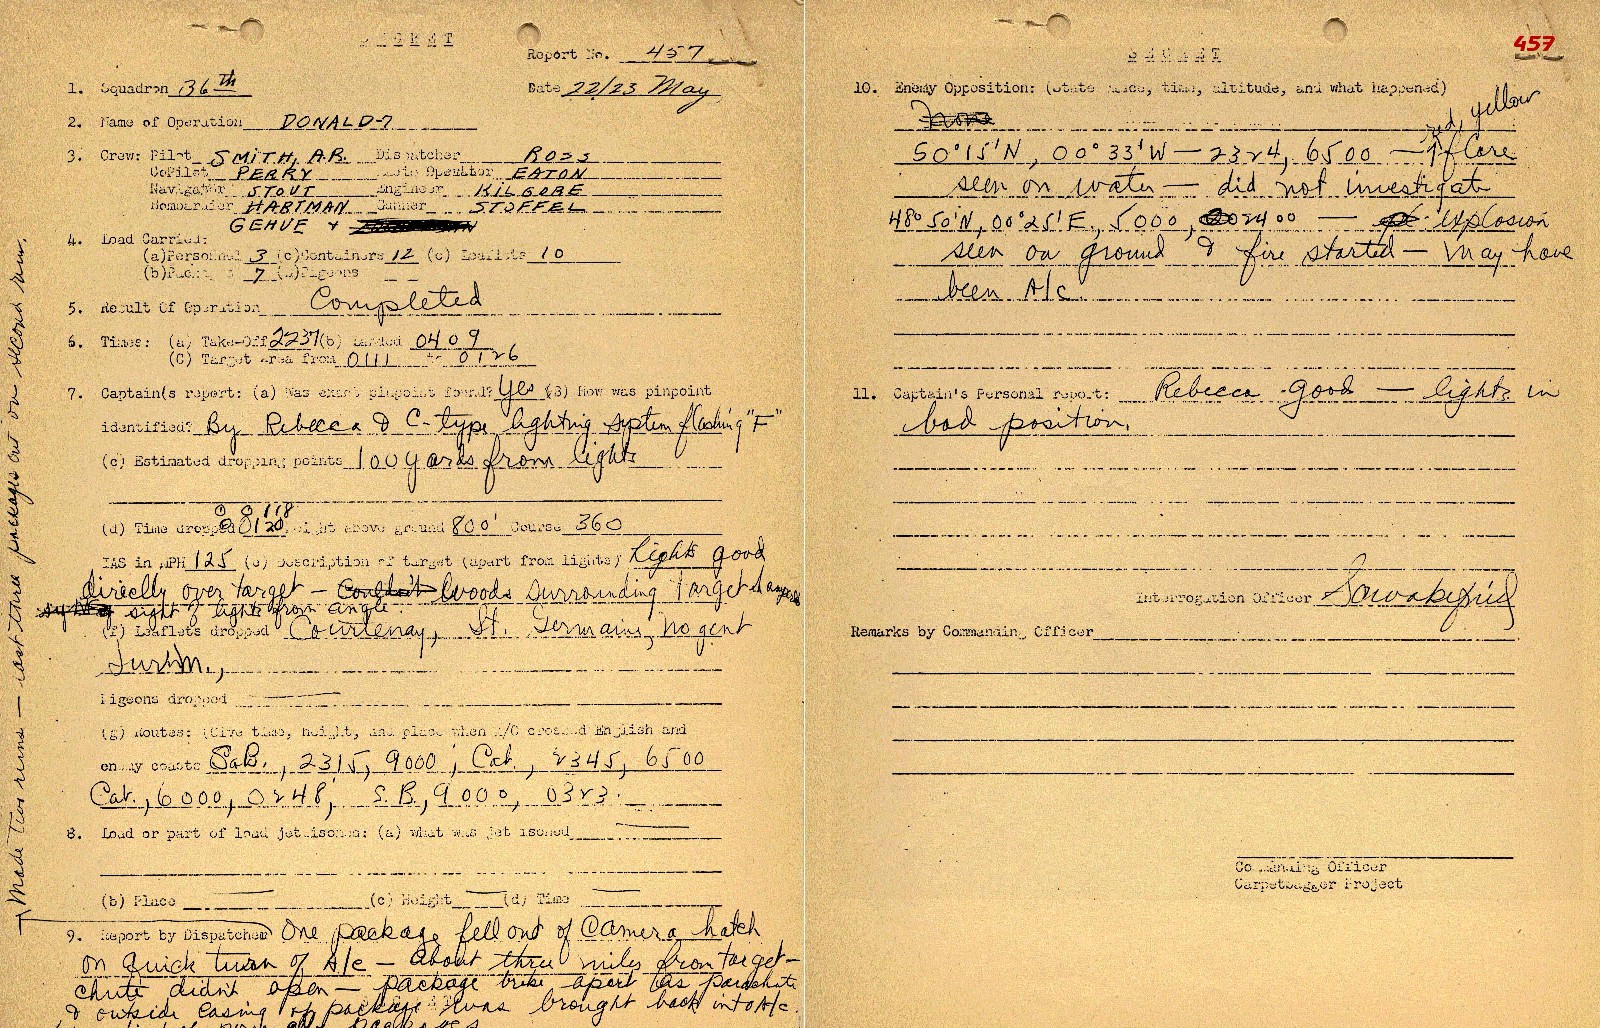 SECRET
Report No. 457
1. Squadron 36th Date 22/23 May
2. Name of Operation DONALD-7
3. Crew: Pilot SMITH, A.R. Dispatcher ROSS
CoPilot PERRY Radio Operator EATON
Navigator STOUT Engineer KILGORE
Bombardier HARTMAN Gunner STOFFEL
GEHUE +
4. Load Carried:
(a)Personnel 3 (c)Containers 12 (e) Leaflets 10
(b)Packages 7 (d)Pigeons
5. Result Of Operation Completed
6. Times: (a) Take-Off 2237 (b) Landed 0409
(C) Target area from 0111 to 0126
7. Captain's report: (a) Was exact pinpoint found? Yes (B) How was pinpoint
identified? By Rebecca & C-type lighting system flashing "F"
(c) Estimated dropping points 100 yards from lights
(d) Time dropped 0118 0120 Height above ground 800' Course 360
IAS in MPH 125 (e) Description of target (apart from lights) Lights good
directly over target — Woods surrounding target
sight of light from angle.
(f) Leaflets dropped Courtenay, St. Germains, Nogent
Pigeons dropped
(g) Routes: (Give time, height, and place when A/C crossed English and
enemy coasts S.B., 2315, 9000; Cat., 2345, 6500
Cat., 6000, 0248; S.B., 9000, 0323.
8. Load or part of load jettisoned: (a) what was jettisoned
(b) Place (c) Height (d) Time
9. Report by Dispatcher One package fell out of camera hatch
on quick turn of A/c — about three miles from target —
chute didn't open — package broke apart as parachute
& outside casing of package was brought back into A/c.
Made two runs — last three packages out on second run.
SECRET
457
10. Enemy Opposition: (State place, time, altitude, and what happened)
None
red, yellow
50°15'N, 00°33'W — 2324, 6500 — flare
seen on water — did not investigate
48°50'N, 00°25'E., 5000, 2400 — explosion
seen on ground & fire started — may have
been A/c
11. Captain's Personal report: Rebecca good — lights in
bad position.
Interrogation Officer
Remarks by Commanding Officer
Commanding Officer
Carpetbagger Project